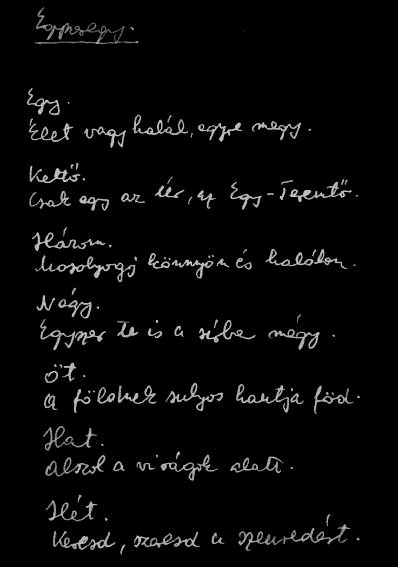 Egyszeregy.
Egy.
Élet vagy halál, egyre megy.
Kettő.
Csak egy az úr, az Egy-Teremtő.
Három.
Mosolyogj könnyön és halálon.
Négy.
Egyszer te is a sírba mégy.
Öt.
A földnek sulyos hantja föd.
Hat.
Alszol a virágok alatt.
Hét.
Keresd, szeresd a szenvedést.